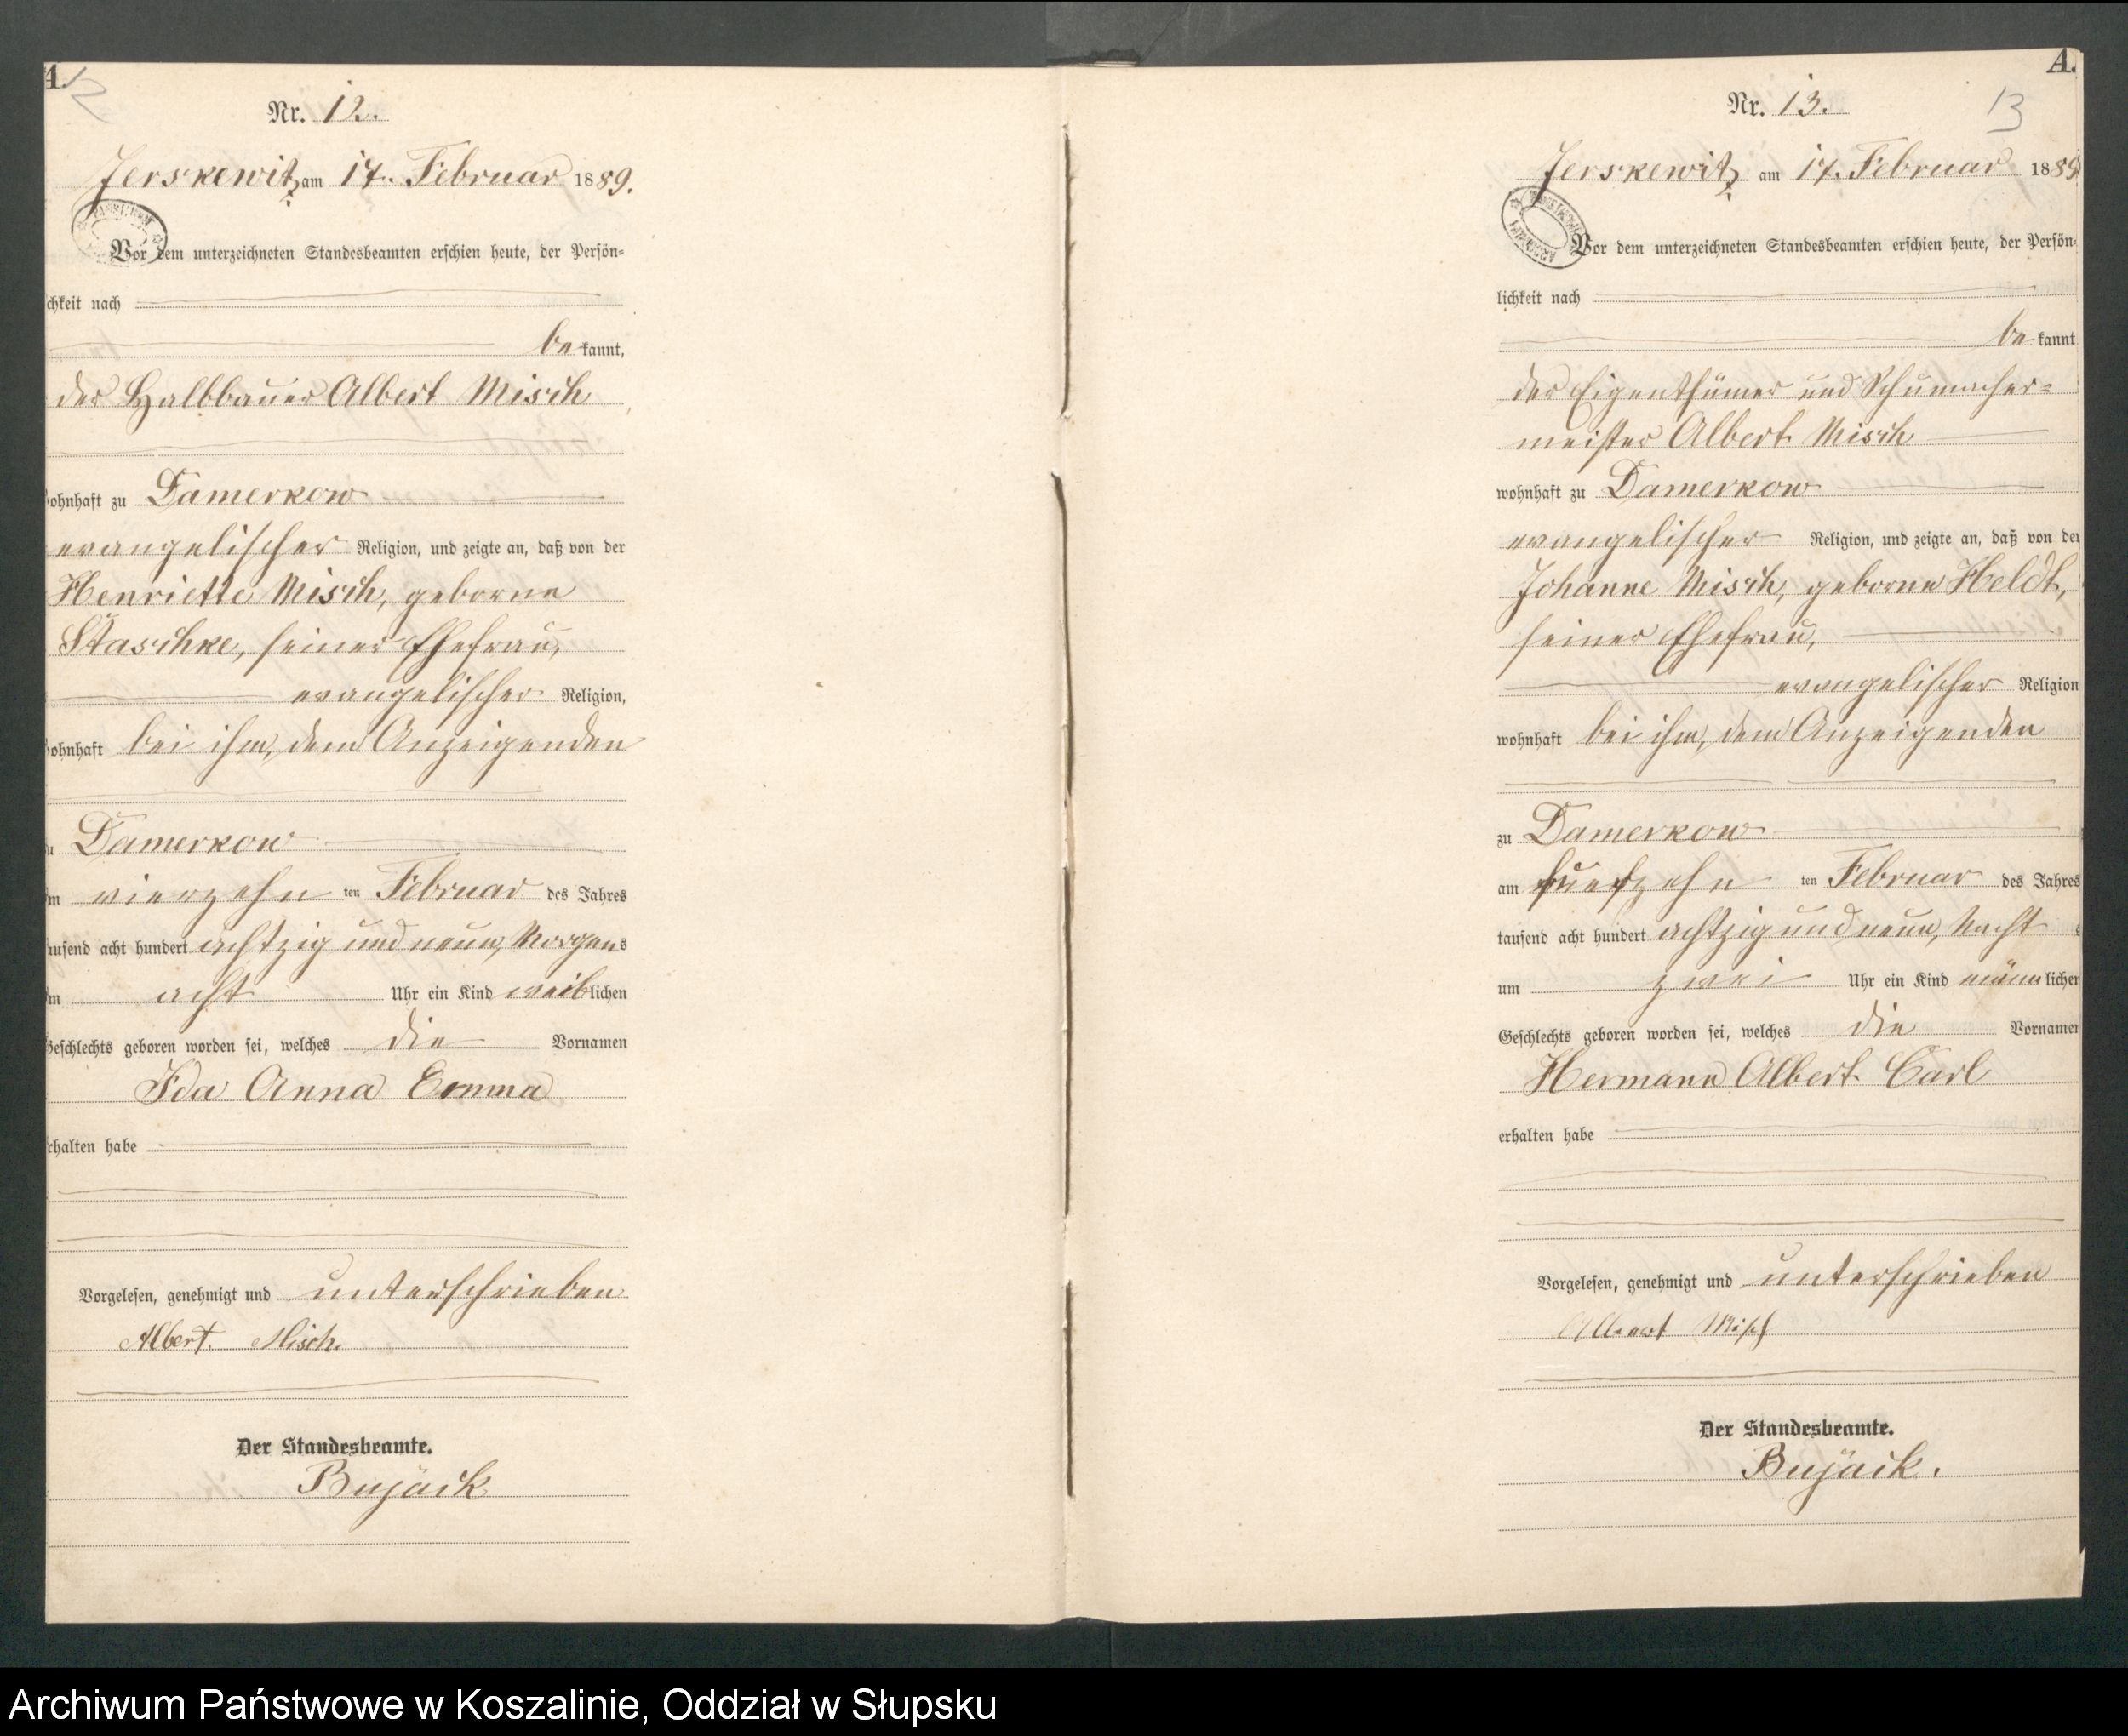 A.
12
Nr. 12.
Jerskewitz am 17. Februar 1889.
Vor dem unterzeichneten Standesbeamten erschien heute, der Persön=
chkeit nach
be kannt,
der Halbbauer Albert Misch
ohnhaft zu Damerkow
evangelischer Religion, und zeigte an, daß von der
Henriette Misch, geborne
Staschke, seiner Ehefrau,
evangelischer Religion,
ohnhaft bei ihm, dem Anzeigenden
u Damerkow
m vierzehn ten Februar des Jahres
usend acht hundert achtzig und neun, Morgens
m acht Uhr ein Kind weiblichen
Geschlechts geboren worden sei, welches die Vornamen
Ida Anna Emma
rhalten habe
Vorgelesen, genehmigt und unterschrieben
Albert. Misch.
Der Standesbeamte.
Bujäck
A.
13
Nr. 13.
Jerskewitz am 17. Februar 1889
Vor dem unterzeichneten Standesbeamten erschien heute, der Persön=
lichkeit nach
be kannt
der Eigenthümer und Schumacher=
meister Albert Misch
wohnhaft zu Damerkow
evangelischer Religion, und zeigte an, daß von der
Johanne Misch, geborne Heldt,
seiner Ehefrau,
evangelischer Religion
wohnhaft bei ihm, dem Anzeigenden
zu Damerkow
am fuefzehn ten Februar des Jahres
tausend acht hundert achtzig und neun, Nacht s
um zwei Uhr ein Kind männlicher
Geschlechts geboren worden sei, welches die Vornamen
Hermann Albert Carl
erhalten habe
Vorgelesen, genehmigt und unterschrieben
Albert Misch
Der Standesbeamte.
Bujäck.
Archiwum Państwowe w Koszalinie, Oddział w Słupsku